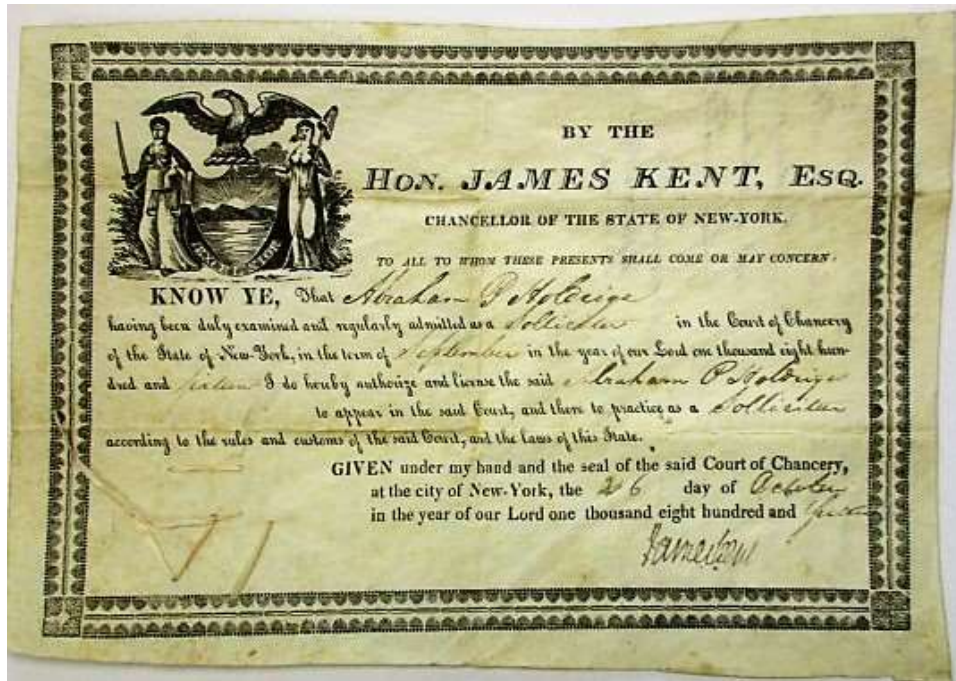 BY THE
HON. JAMES KENT, ESQ.
CHANCELLOR OF THE STATE OF NEW-YORK.
TO ALL TO WHOM THESE PRESENTS SHALL COME OR MAY CONCERN:
EXCELSIOR
KNOW YE, That Abraham P Holdrige
having been duly examined and regularly admitted as a Sollicitor in the Court of Chancery
of the State of New-York, in the term of September in the year of our Lord one thousand eight hun-
dred and I do hereby authorize and license the said Abraham P Holdrige
to appear in the said Court, and there to practice as a Sollicitor
according to the rules and customs of the said Court, and the laws of this State.
GIVEN under my hand and the seal of the said Court of Chancery,
at the city of New-York, the 26 day of October
in the year of our Lord one thousand eight hundred and
James Kent